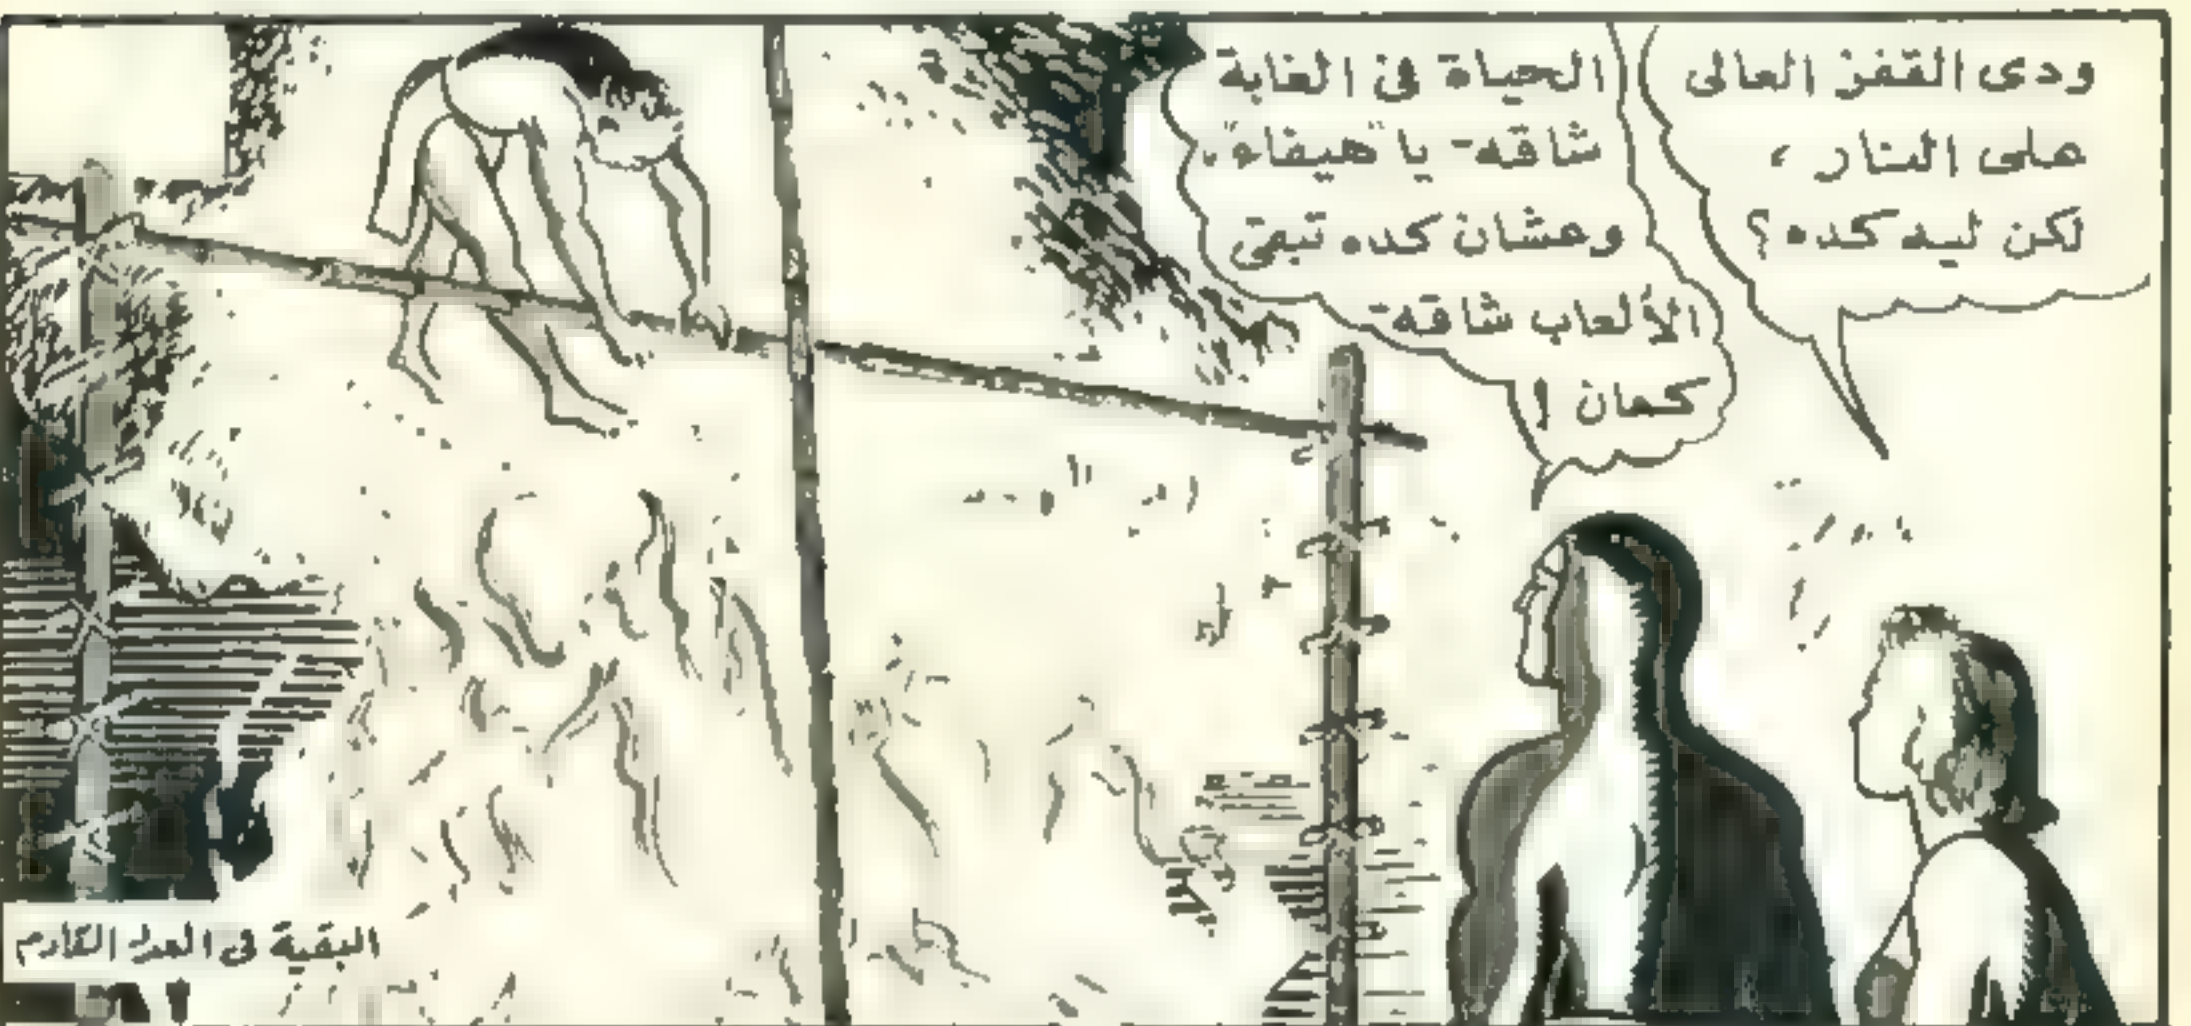 ودى القفز العالى
على النار ،
لكن ليه كده ؟
الحياة فى الغابة
شاقه يا "هيفاء" ،
وعشان كده تبقى
الألعاب شاقه
كمان !
البقية فى العدد القادم